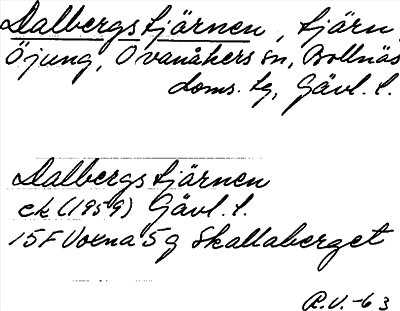 Dalbergstjärnen, tjärn,
Öjung, Ovanåkers sn, Bollnäs
doms. tg, Gävl. l.
Dalbergstjärnen
ek (1959) Gävl. l.
15F Voxna 5g Skallaberget
R.V. -63